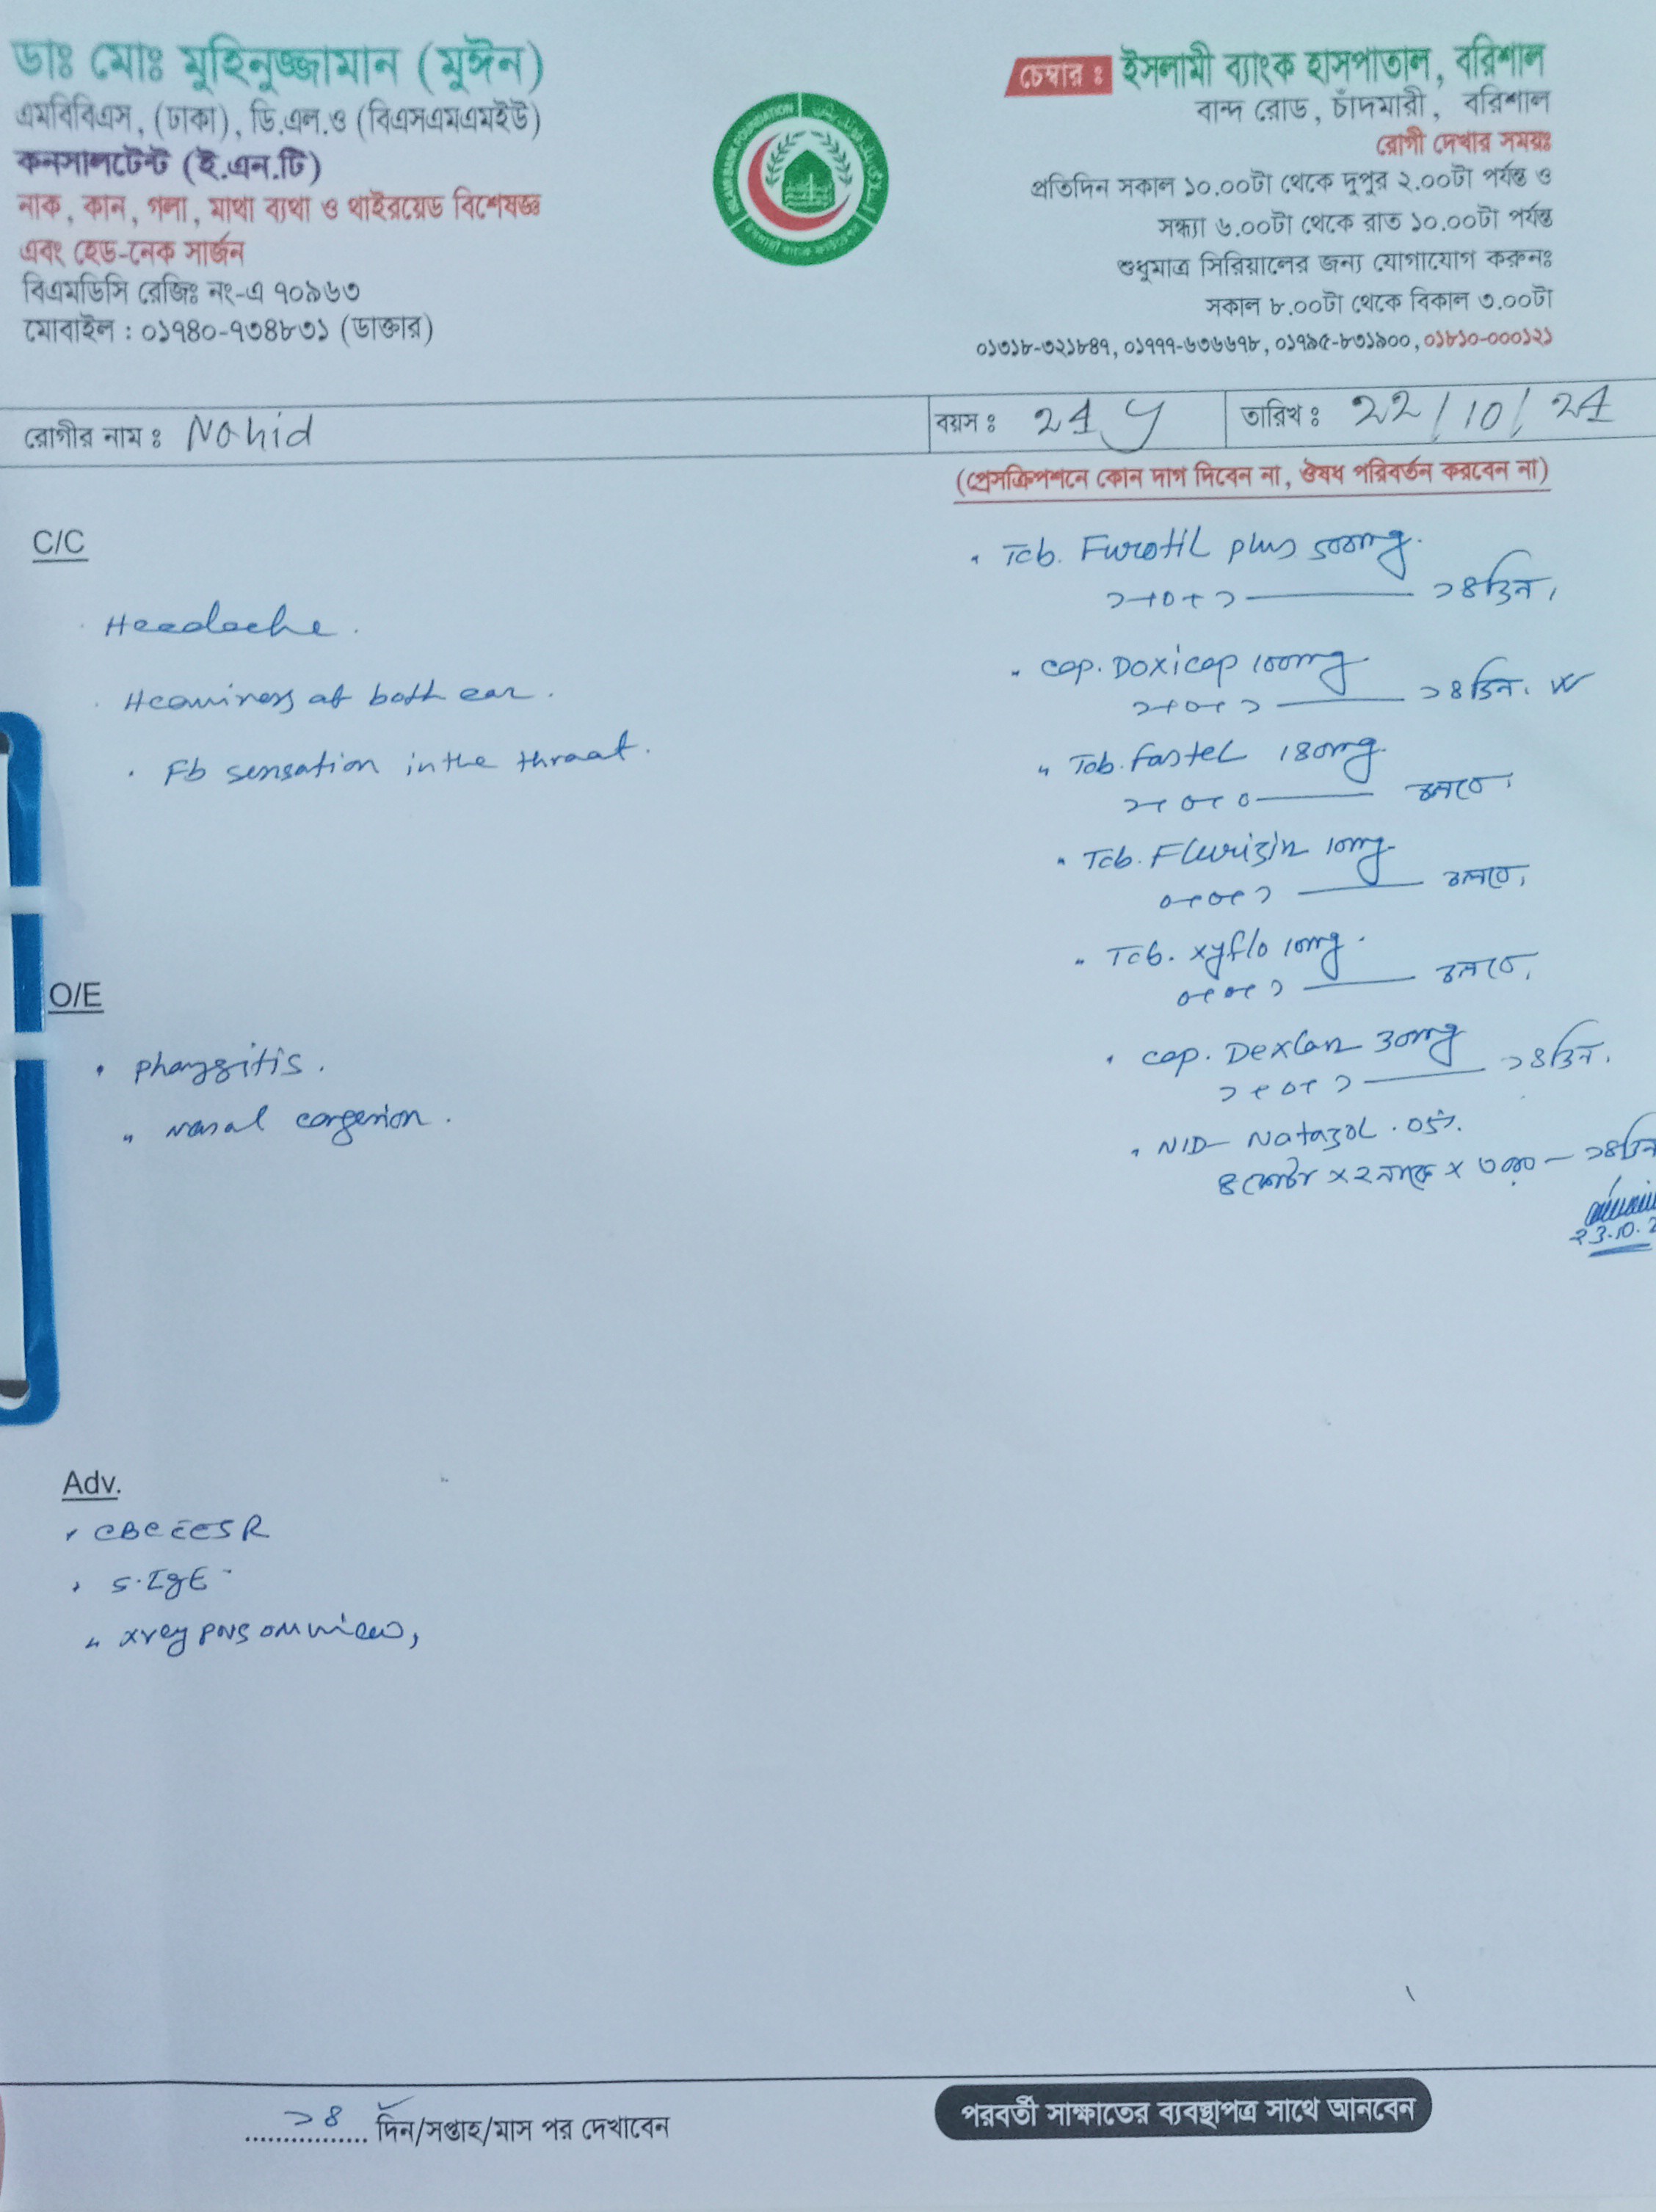 ডাঃ মোঃ মুহিনুজ্জামান (মুঈন)
এমবিবিএস, (ঢাকা), ডি.এল.ও (বিএসএমএমইউ)
কনসালটেন্ট (ই.এন.টি)
নাক, কান, গলা, মাথা ব্যথা ও থাইরয়েড বিশেষজ্ঞ
এবং হেড-নেক সার্জন
বিএমডিসি রেজিঃ নং-এ ৭০৯৬৩
মোবাইল : ০১৭৪০-৭৩৪৮৩১ (ডাক্তার)
চেম্বার : ইসলামী ব্যাংক হাসপাতাল, বরিশাল
বান্দ রোড, চাঁদমারী, বরিশাল
রোগী দেখার সময়ঃ
প্রতিদিন সকাল ১০.০০টা থেকে দুপুর ২.০০টা পর্যন্ত ও
সন্ধ্যা ৬.০০টা থেকে রাত ১০.০০টা পর্যন্ত
শুধুমাত্র সিরিয়ালের জন্য যোগাযোগ করুনঃ
সকাল ৮.০০টা থেকে বিকাল ৩.০০টা
০১৩১৮-৩২১৮৪৭, ০১৭৭৭-৬৩৬৬৭৮, ০১৭৯৫-৮৩১৯০০, ০১৮১০-০০০১২১
রোগীর নাম ঃ Nahid বয়স ঃ 24 y তারিখ ঃ 22/10/24
(প্রেসক্রিপশনে কোন দাগ দিবেন না, ঔষধ পরিবর্তন করবেন না)
C/C
Headache.
Heaviness of both ear.
Fb sensation in the throat.
O/E
Nasal
Adv.
CBC ESR
S. IgE
Xray PNS OM view,
Tab. Furotil plus 500mg.
১+০+১ ১৪ দিন।
Cap. Doxicap 100mg
১+০+১ ১৪ দিন।
Tab. Fastel 180mg.
১+০+০ চলবে।
Tab. Flurizin 10mg
০+০+১ চলবে।
Tab. Xyflo 10mg.
০+০+১ চলবে।
Cap. Dexlan 30mg
১+০+১ ১৪ দিন।
Natazol .05%
৪ ফোটা x ২ নাকে x ৩ - ১৪ দিন
23.10.2
১৪ দিন/সপ্তাহ/মাস পর দেখাবেন
পরবর্তী সাক্ষাতের ব্যবস্থাপত্র সাথে আনবেন